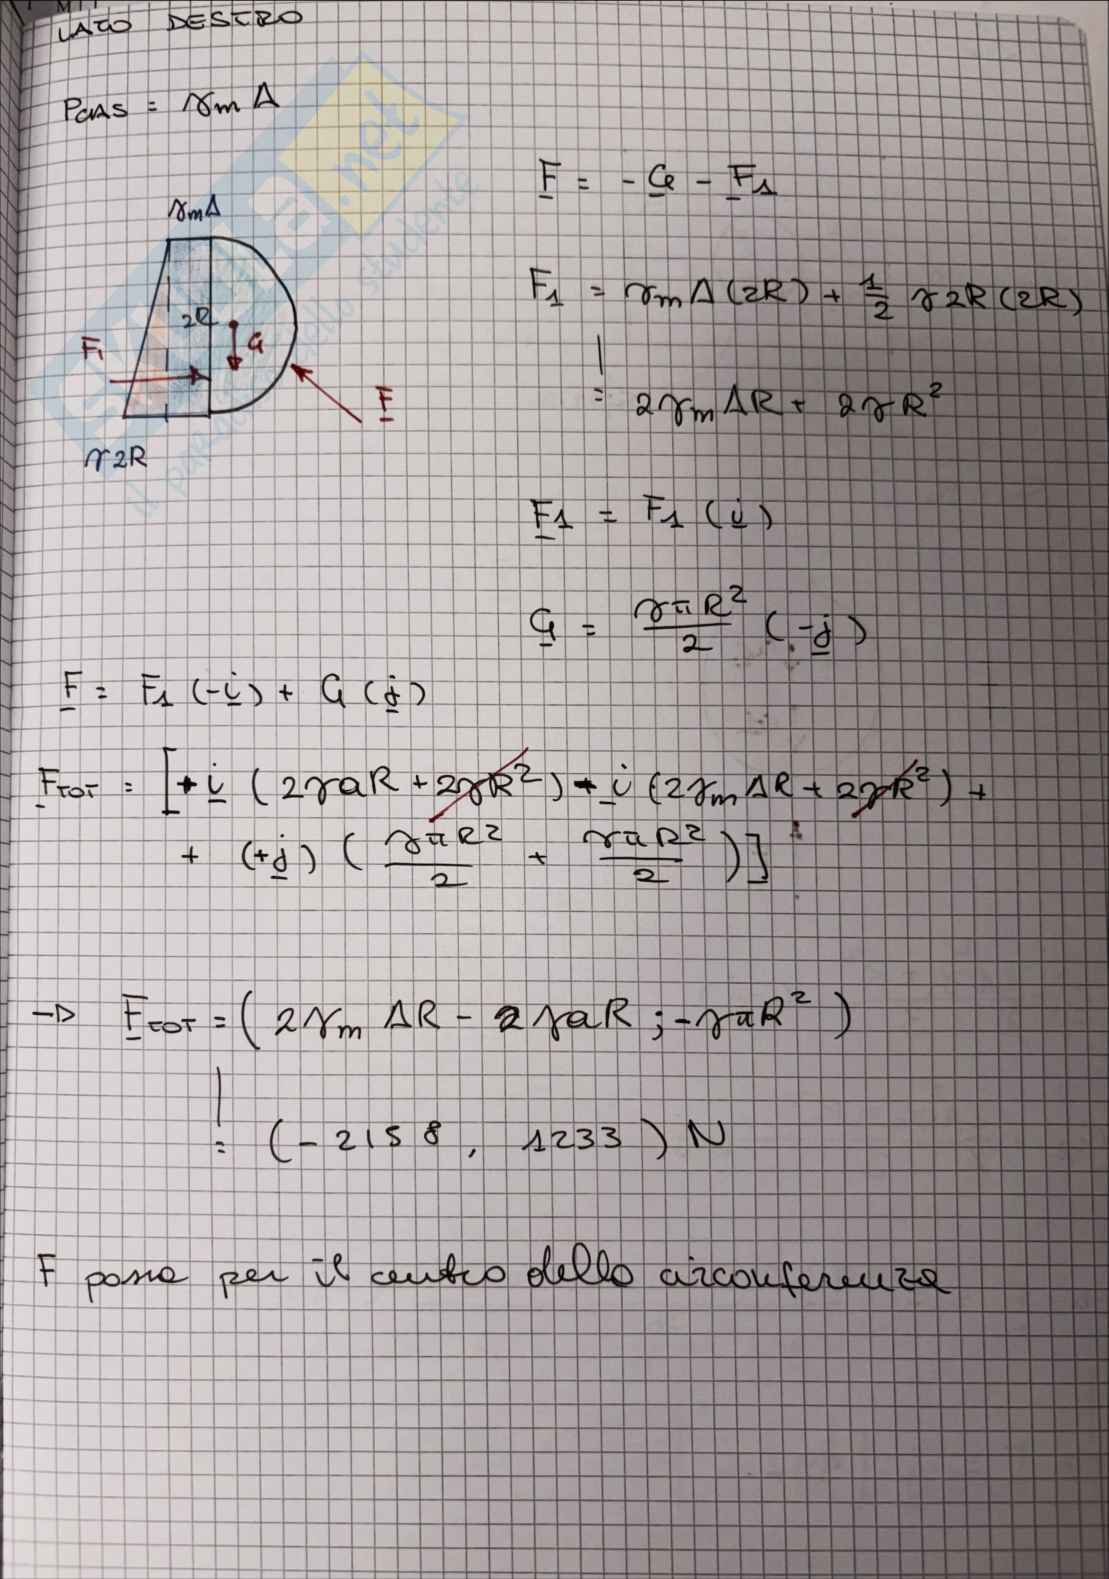 LATO DESTRO
PGAS = γm Δ
F = - G - F1
γmΔ
F1 = γmΔ(2R) + 1/2 γ2R(2R)
2R
G
F1
= 2γmΔR + 2γR²
F
γ2R
F1 = F1 (i)
G = γπR²/2 (-j)
F = F1 (-i) + G (j)
FTOT = [+i (2γaR + 2γR²) + i (2γmΔR + 2γR²) +
+ (+j) (γπR²/2 + γπR²/2)]
→ FTOT = (2γmΔR - 2γaR ; -γπR²)
= (-2158, 1233) N
F passa per il centro della circonferenza
.net